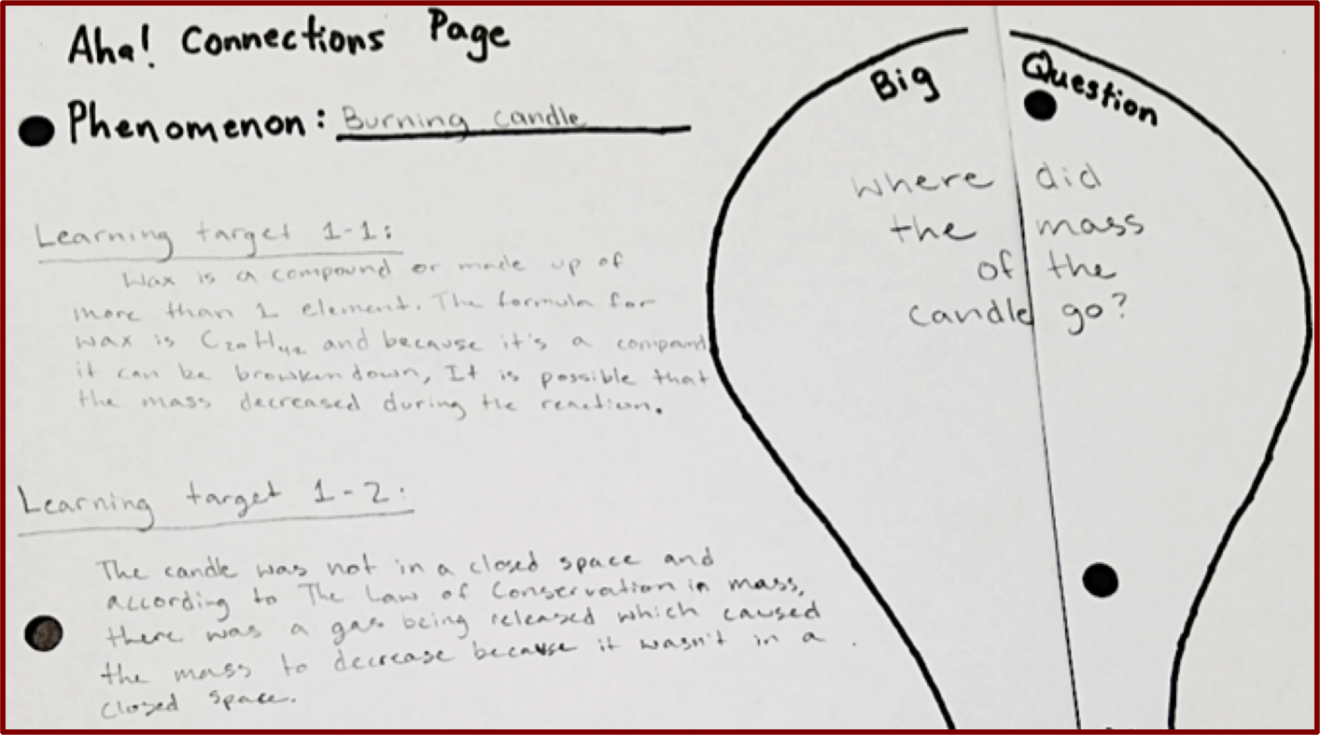 Aha! Connections Page
Phenomenon: Burning candle
Learning target 1-1:
Wax is a compound or made up of
more than 1 element. The formula for
wax is C₂₀H₄₂ and because it's a compound
it can be browken down, It is possible that
the mass decreased during the reaction.
Learning target 1-2:
The candle was not in a closed space and
according to The Law of Conservation in mass,
there was a gas being released which caused
the mass to decrease because it wasn't in a
closed space.
Big Question
where did
the mass
of the
candle go?